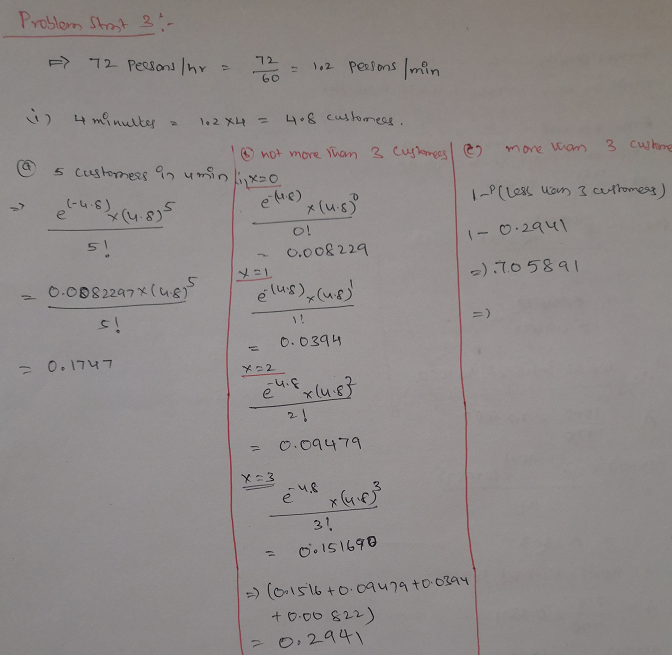 Problem Stmt 3:-
⇒ 72 persons/hr = 72/60 = 1.2 persons/min
i) 4 minutes = 1.2 x4 = 4.8 customers.
(a) 5 customers in 4 min
⇒ e^(-4.8) x (4.8)^5
5!
= 0.0082297 x (4.8)^5
5!
= 0.1747
(b) not more than 3 customers
i, x=0
e^-(4.8) x (4.8)^0
0!
= 0.008229
x=1
e^-(4.8) x (4.8)^1
1!
= 0.0394
x=2
e^-4.8 x (4.8)^2
2!
= 0.09479
x=3
e^-4.8 x (4.8)^3
3!
= 0.151690
⇒ (0.1516 + 0.09479 + 0.0394
+ 0.00822)
= 0.2941
c) more than 3 custome
1-P(less than 3 customers)
1- 0.2941
⇒ .705891
⇒